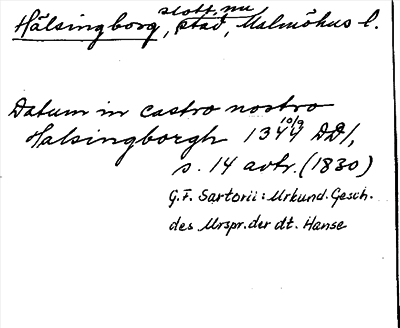 Hälsingborg, slott, nu stad, Malmöhus l.
Datum in castro nostro
Halsingborgh 1344 10/9 DD1,
s. 14 avtr. (1830)
G.F. Sartorii: Urkund. Gesch.
des Urspr. der dt. Hanse